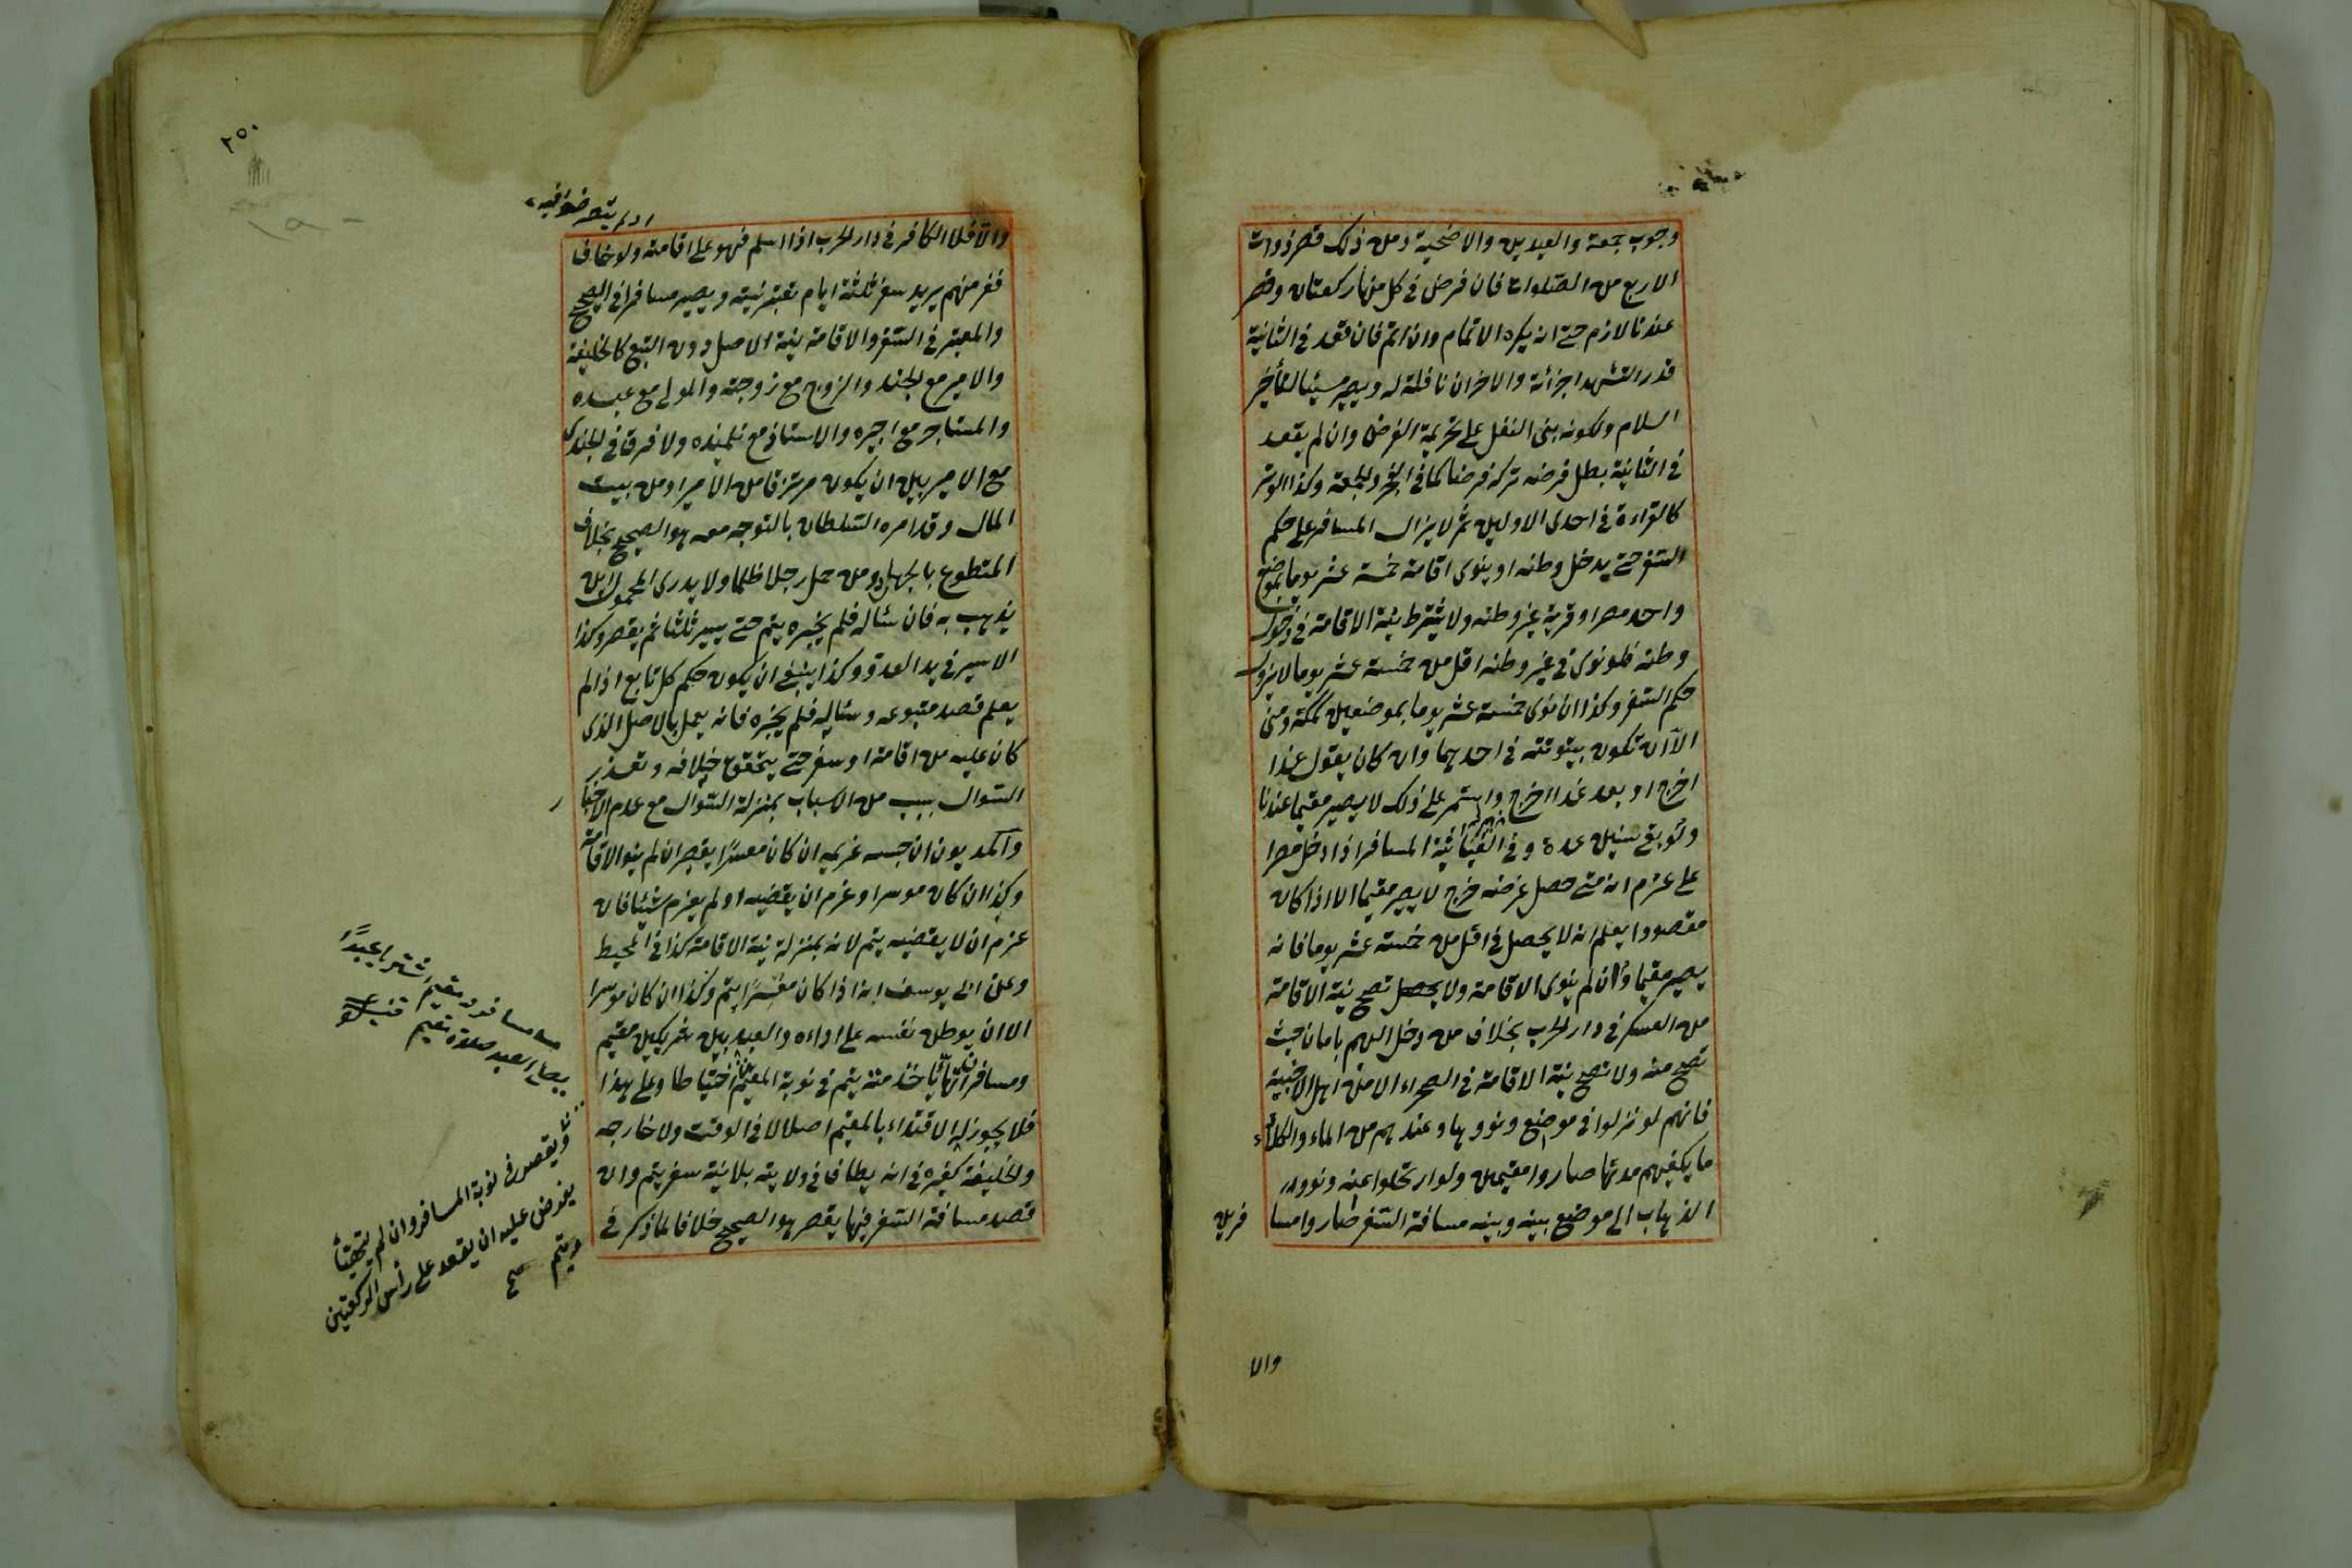 وجوب جمعة والعيدين والاضحية ومن ذلك قصر ذوات
الاربع من الصلوات فان فرض في كل منها ركعتان وقصر
عندنا لازم حتى انه يكره الاتمام وان اتم فان قعد في الثانية
قدر التشهد اجزأته والاخران نافلة له ويصير مسيئا لتأخير
السلام ولكونه بنى النفل على تحريمة الفرض وان لم يقعد
في الثانية بطل فرضه تركه فرضا كما في الفجر والجمعة وكذا الوتر
كالقراءة في احدى الاوليين ثم لا يزال المسافر على حكم
السفر حتى يدخل وطنه او ينوى اقامة خمسة عشر يوما بموضع
واحد مصر او قرية غير وطنه ولا يشترط نية الاقامة في دخول
وطنه فلو نوى في غير وطنه اقل من خمسة عشر يوما لا يزول
حكم السفر وكذا ان نوى خمسة عشر يوما بموضعين كمكة ومنى
الا ان تكون بيتوتته في احدهما وان كان يقول غدا
اخرج او بعد غد اخرج واستمر على ذلك لا يصير مقيما عندنا
ولو بقي سنين عدة وفي المسافر اذا دخل مصرا
على عزم انه متى حصل غرضه خرج لا يصير مقيما الا اذا كان
مقصودا يعلم انه لا يحصل في اقل من خمسة عشر يوما فانه
يصير مقيما وان لم ينوى الاقامة ولا تصح نية الاقامة
من العسكر في دار الحرب بخلاف من دخل اليهم بامان حيث
تصح منه ولا تصح نية الاقامة في الصحراء الا من اهل الاخبية
فانهم لو نزلوا في موضع ونووها وعندهم من الماء والكلاء
ما يكفيهم مدتها صاروا مقيمين ولو ارتحلوا عنه ونووا
الذهاب الى موضع بينه وبينه مسافة السفر صاروا مسا
فرين
والا
٢٥٠
والا فلا الكافر في دار الحرب اذا اسلم فهو على اقامته ولو خاف
ففر منهم يريد سفر ثلثة ايام تعتبر نيته ويصير مسافرا في الصحيح
والمعتبر في السفر والاقامة نية الاصل دون التبع كالخليفة
والامير مع الجند والزوج مع زوجته والمولى مع عبده
والمستاجر مع اجيره والاستاذ مع تلميذه ولا فرق في الجندى
مع الامير بين ان يكون مرتزقا من الامير او من بيت
المال وقد امره السلطان بالتوجه معه هو الصحيح بخلاف
المتطوع بالجهاد ومن حمل رجلا ظلما ولا يدرى المحمول اين
يذهب به فان سئاله فلم يخبره يتم حتى يسير ثلثا ثم يقصر وكذا
الاسير في يد العدو وكذا ينبغي ان يكون حكم كل تابع اذا لم
يعلم قصد متبوعه وسئاله فلم يخبره فانه يعمل بالاصل الذى
كان عليه من اقامة او سفر حتى يتحقق خلافه وتعذر
السؤال بسبب من الاسباب بمنزلة السؤال مع عدم الاخبار
والمديون ان حبسه غريمه ان كان معسرا يقصر ان لم ينو الاقامة
وكذا ان كان موسرا وعزم ان يقضيه او لم يعزم شيئا فان
عزم ان لا يقضيه يتم لانه بمنزلة نية الاقامة كذا في المحيط
وعن ابي يوسف انه اذا كان معسرا يتم وكذا ان كان موسرا
الا ان يوطن نفسه على اداءه والعبد بين شريكين مقيم
ومسافر ان تهايئا خدمته يتم في نوبة المقيم احتياطا وعلى هذا
فلا يجوز له الاقتداء بالمقيم اصلا لا في الوقت ولا خارجه
والخليفة كغيره في انه يطاف في ولايته بلا نية سفر يتم وان
قصد مسافة السفر فيها يقصر هو الصحيح خلافا لما ذكر في
مسافر ومقيم اشتريا عبدا
يصلى العبد صلاة مقيم قنية
ويقصر في نوبة المسافر وان لم يتهيئا
يفرض عليه ان يقعد على رأس الركعتين
ويتم صح